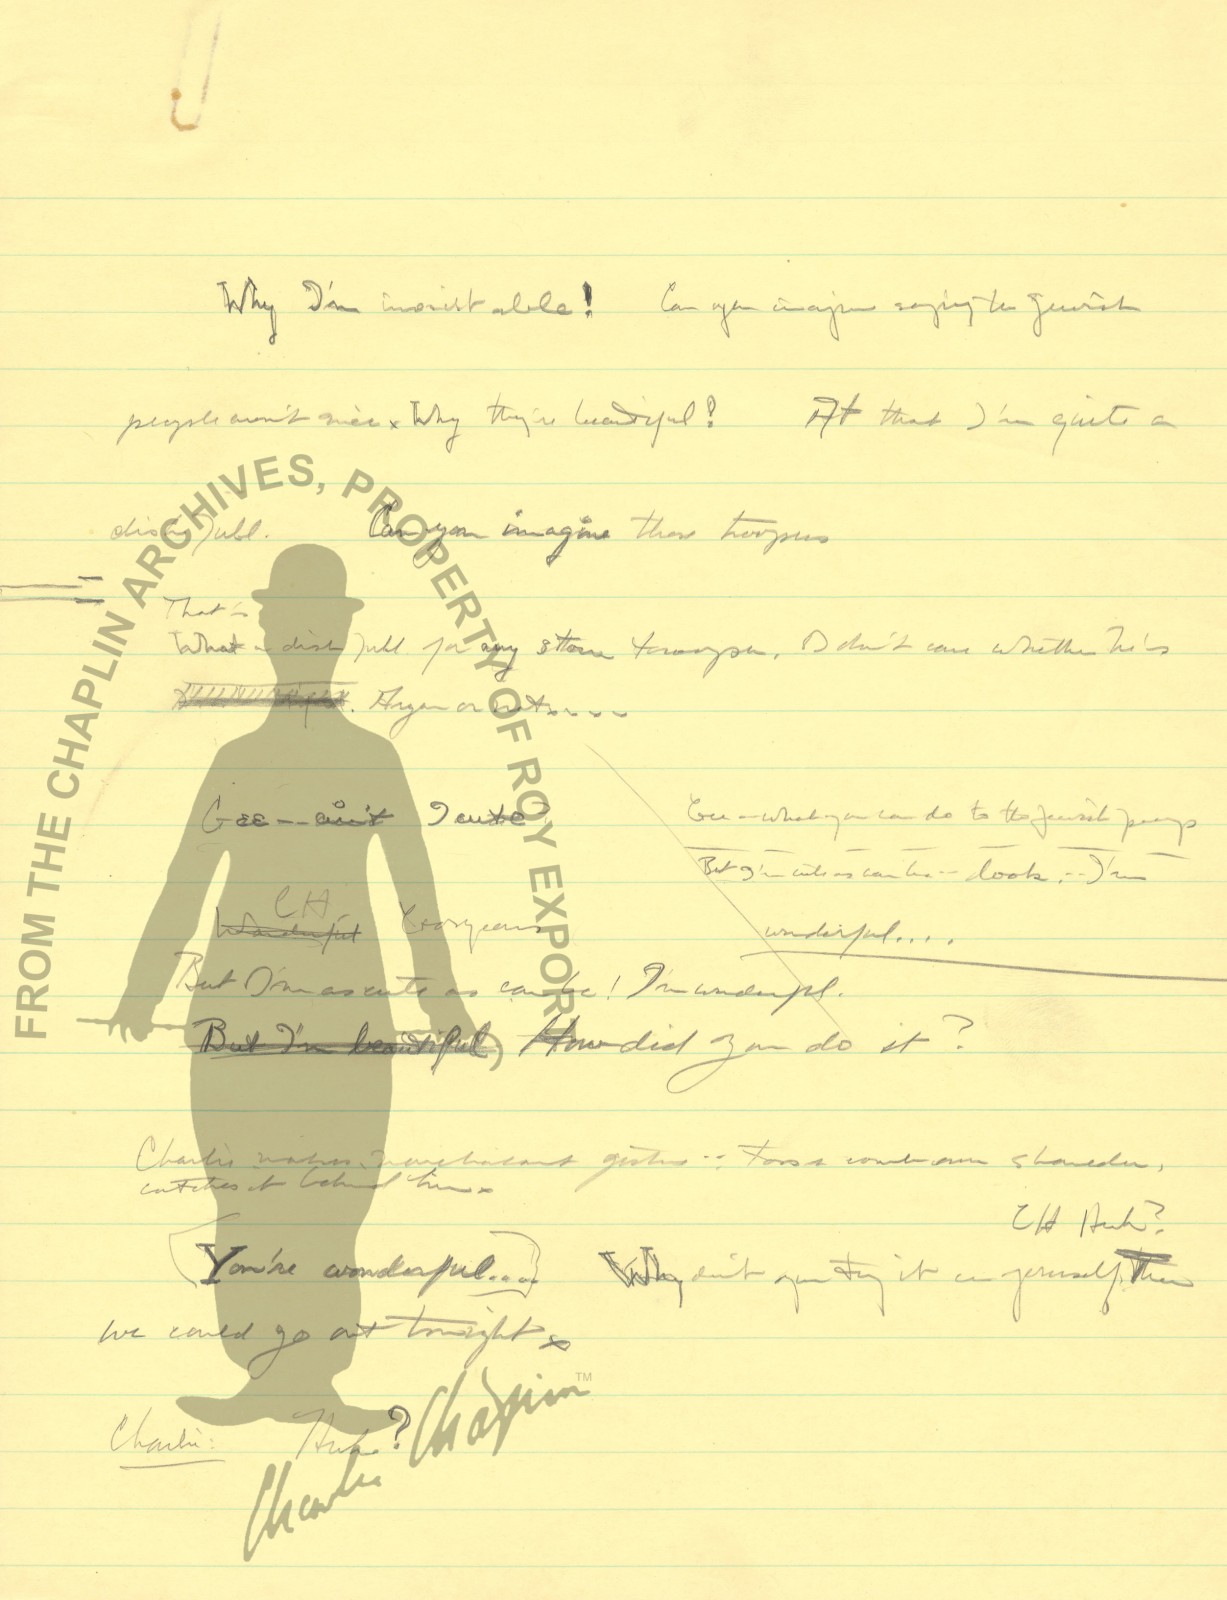 Why I'm irresistable! Can you imagine saying the Jewish
people aren't nice. Why they're beautiful? At that I'm quite a
dishfull. Can you imagine those troopers
That's
What a dish full for any storm trooper. I don't care whether he's
Aryan or not....
Gee -- ain't I cute
Gee - what you can do to the Jewish
But I'm cute as can be -- look -- I'm
wonderful....
CH
Wonderful Gorgeous
But I'm as cute as can be! I'm wonderful.
But I'm beautiful How did you do it?
Charlie makes nonchalant gesture -- Toss comb over shoulder,
catches it behind him.
CH Huh?
(You're wonderful....) Why don't you try it on yourself, Then
we could go out tonight.
Charlie: Huh?
FROM THE CHAPLIN ARCHIVES, PROPERTY OF ROY EXPORT
Charlie Chaplin™